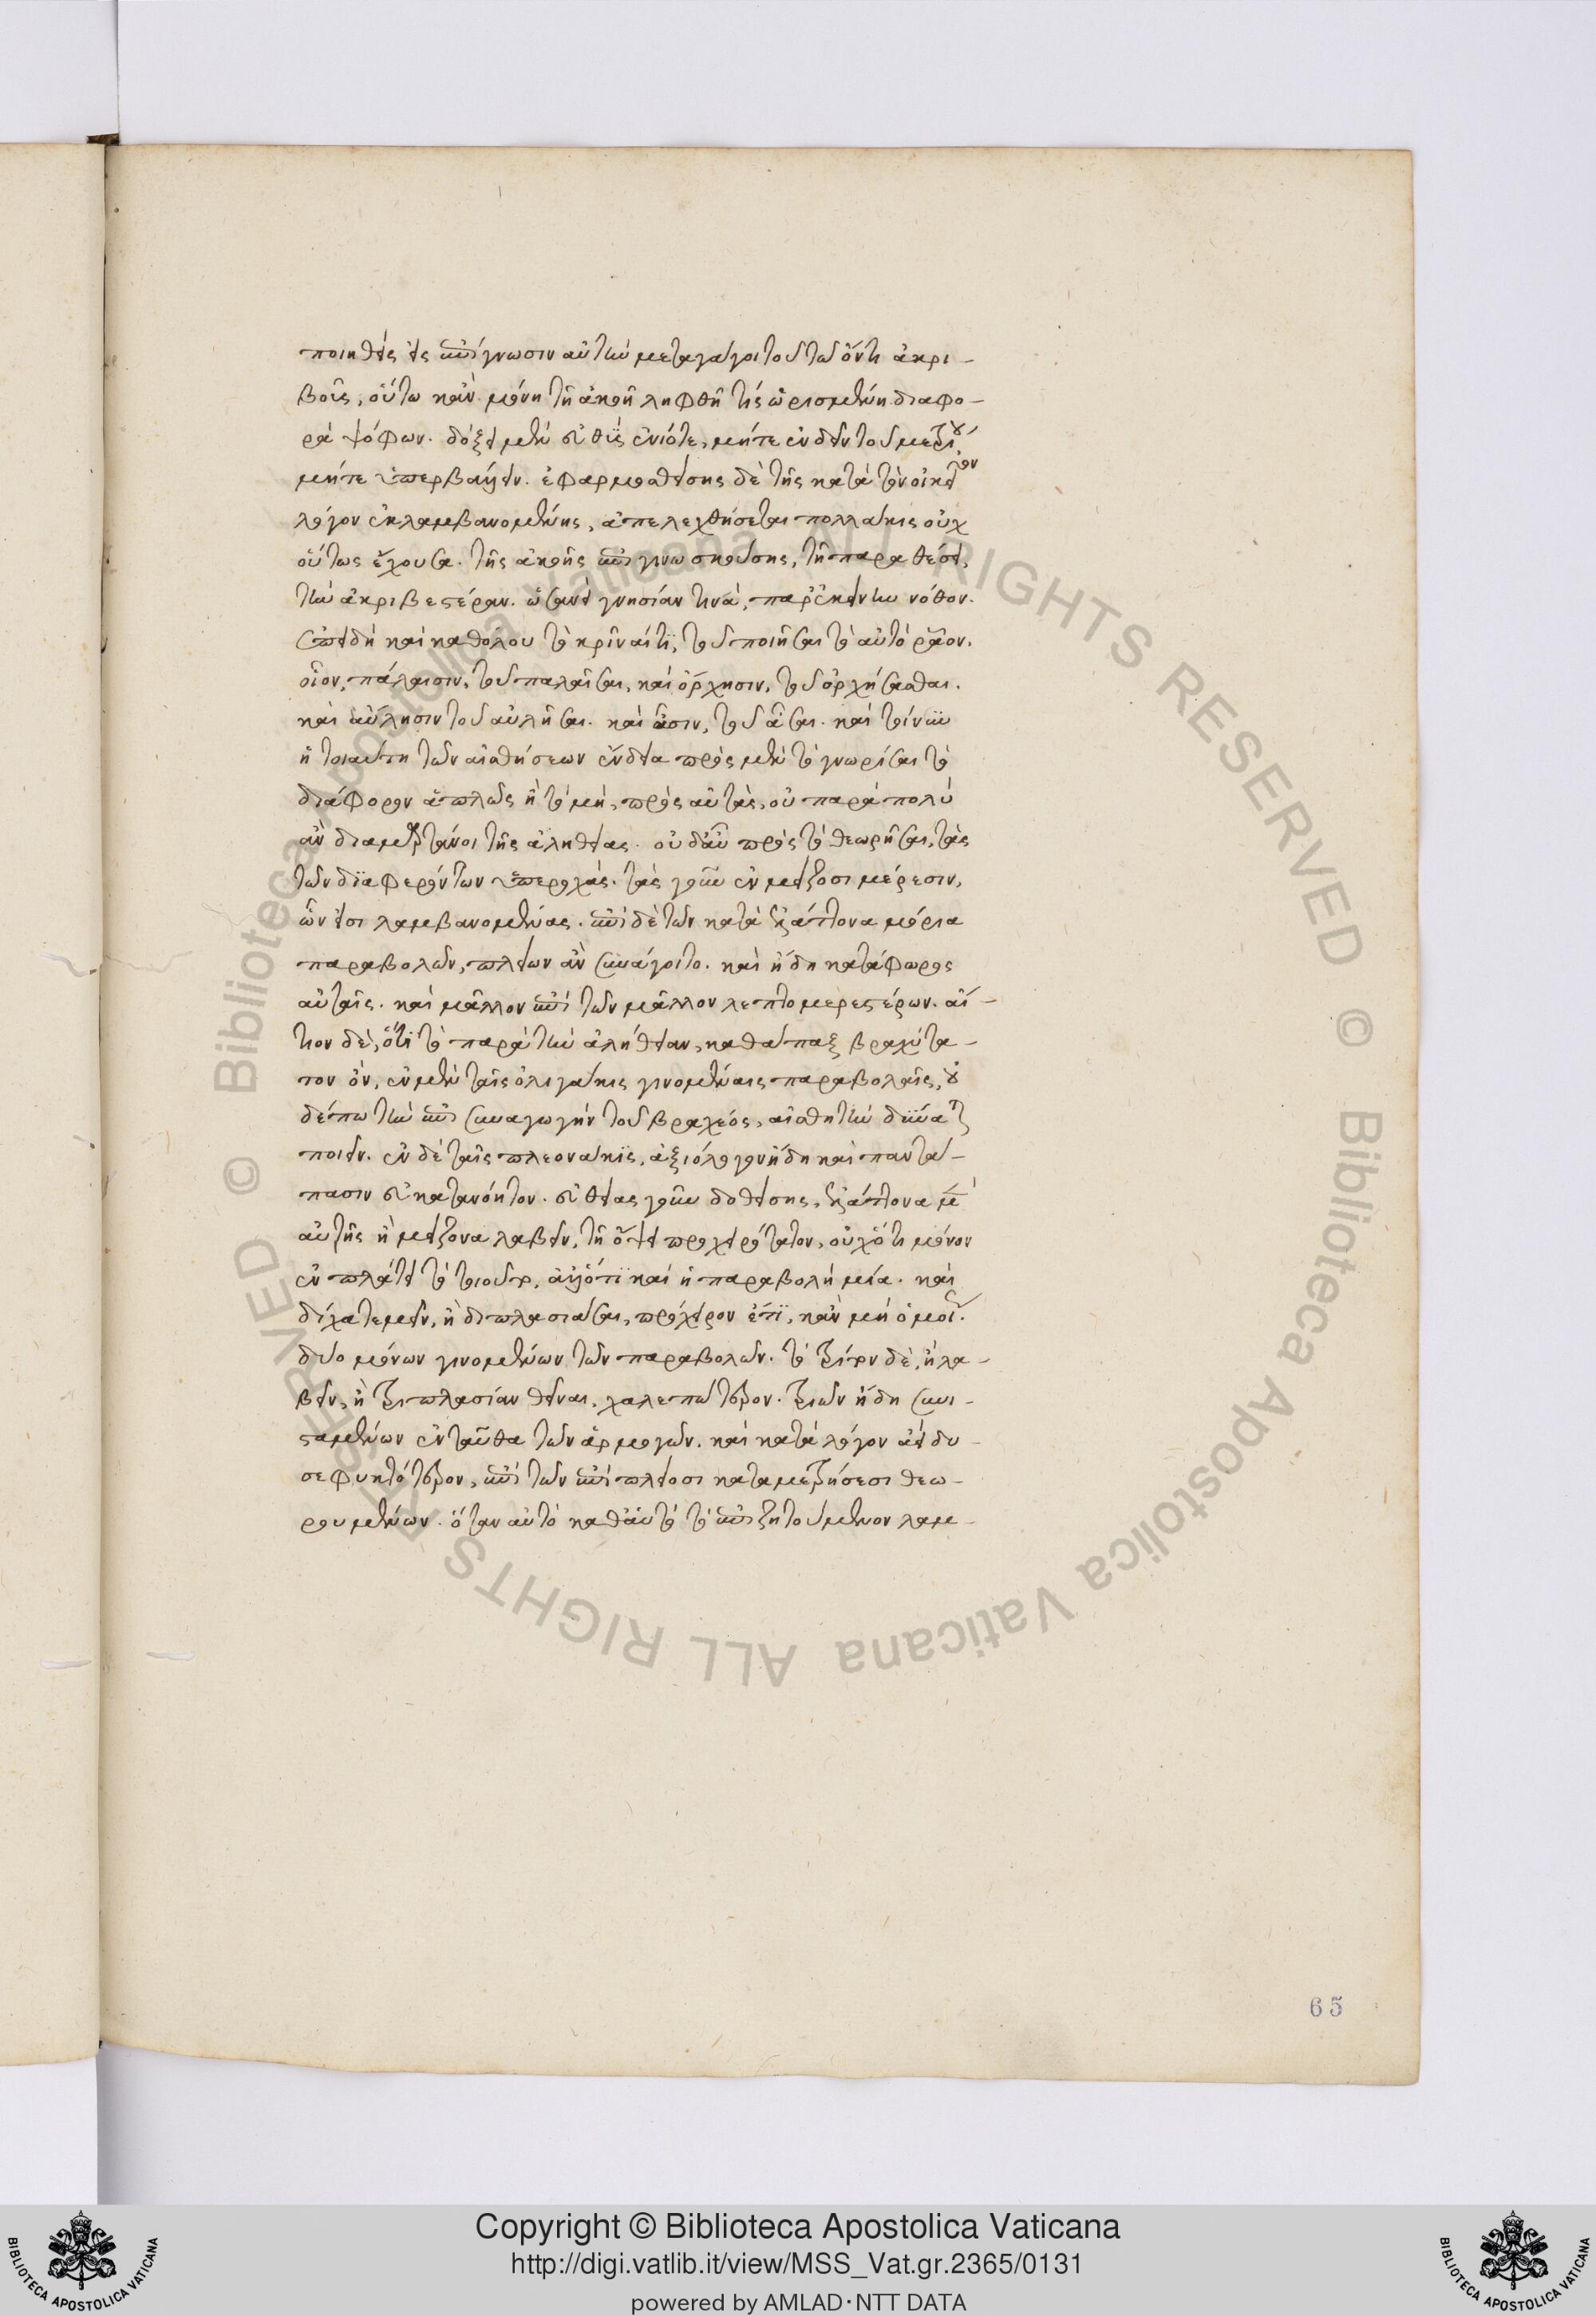 ποιηθείς εἰς ἐπίγνωσιν αὐτὴν μεταγάγοι τοῦ τῶ ὄντι ἀκρι-
βοῦς, οὕτω κἂν μόνη τῆ ἀκοῆ ληφθῆ τίς ὡρισμένη διαφο-
ρὰ ψόφων. δόξει μὲν εὐθὺς ἐνίοτε, μήτε ἐνδεῖν τοῦ μετρίου,
μήτε ὑπερβάλλειν. ἐφαρμοσθείσης δὲ τῆς κατὰ τὸν οἰκεῖον
λόγον ἐκλαμβανομένης, ἀπελεγχθήσεται πολλάκις οὐχ
οὕτως ἔχουσα. τῆς ἀκοῆς ἐπιγινωσκούσης, τῆ παραθέσει,
τὴν ἀκριβεστέραν. ὡσανεὶ γνησίαν τινὰ, παρ' ἐκείνην νόθον.
ἐπειδὴ καὶ καθόλου τὸ κρῖναί τι, τοῦ ποιῆσαι τὸ αὐτὸ ῥᾷον.
οἷον, πάλαισιν, τοῦ παλαῖσαι, καὶ ὄρχησιν, τοῦ ὀρχήσασθαι.
καὶ αὔλησιν τοῦ αὐλῆσαι. καὶ ᾆσιν, τοῦ ᾆσαι. καὶ τοίνυν
ἡ τοιαύτη τῶν αἰσθήσεων ἔνδεια πρὸς μὲν τὸ γνωρίσαι τὸ
διάφορον ἁπλῶς ἢ τὸ μὴ, πρὸς αὐτὰς, οὐ παρὰ πολύ
ἂν διαμαρτάνοι τῆς ἀληθείας. οὐδ' αὖ πρὸς τὸ θεωρῆσαι, τὰς
τῶν διαφερόντων ὑπεροχάς. τάς γοῦν ἐν μείζοσι μέρεσιν,
ὧν εἰσι λαμβανομένας. ἐπὶ δὲ τῶν κατὰ ἐλάττονα μόρια
παραβολῶν, πλείων ἂν συνάγοιτο. καὶ ἤδη κατάφωρος
αὐταῖς. καὶ μᾶλλον ἐπὶ τῶν μᾶλλον λεπτομερεστέρων. αἴ-
τιον δὲ, ὅτι τὸ παρὰ τὴν ἀλήθειαν, καθάπαξ βραχύτα-
τον ὂν, ἐν μὲν ταῖς ὀλιγάκις γινομέναις παραβολαῖς, οὐ
δέπω τὴν ἐπισυναγωγὴν τοῦ βραχέος, αἰσθητὴν δύναται
ποιεῖν. ἐν δὲ ταῖς πλεονάκις, ἀξιόλογον ἤδη καὶ παντά-
πασιν εὐκατανόητον. εὐθείας γοῦν δοθείσης, ἐλάττονα μὲν
αὐτῆς ἢ μείζονα λαβεῖν, τῆ ὄψει προχειρότατον, οὐχ ὅτι μόνον
ἐν πλάτει τὸ τοιοῦτο, ἀλλ' ὅτι καὶ ἡ παραβολὴ μία. καὶ
δίχα τεμεῖν, ἢ διπλασιάσαι, πρόχειρον ἔτι, κἂν μὴ ὁμοίως.
δύο μόνων γινομένων τῶν παραβολῶν. τὸ τρίτον δὲ, ἢ λα-
βεῖν, ἢ τριπλασίαν θεῖναι, χαλεπώτερον. τριῶν ἤδη συνι-
σταμένων ἐνταῦθα τῶν ἁρμογῶν. καὶ κατὰ λόγον ἀεὶ δυ-
σεφικτότερον, ἐπὶ τῶν ἐπὶ πλείοσι καταμετρήσεσι θεω-
ρουμένων. ὅταν αὐτὸ καθ' αὑτὸ τὸ ἐπιζητούμενον λαμ-
65
Copyright © Biblioteca Apostolica Vaticana
http://digi.vatlib.it/view/MSS_Vat.gr.2365/0131
powered by AMLAD·NTT DATA